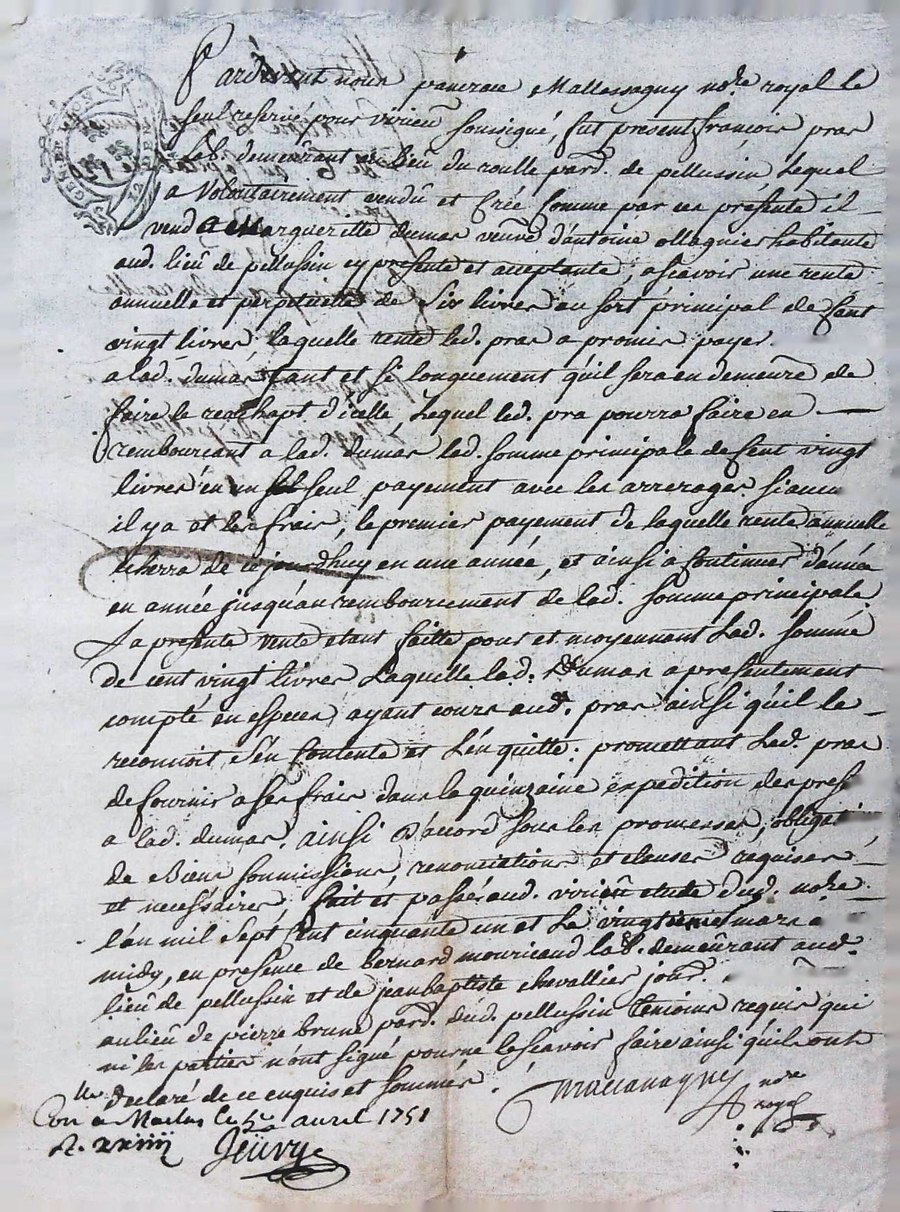 GENER LYON
12 DEN
Pardevant nous pancrace Mallassagny no.re royal le
seul reservé pour virieu soussigné, fut present françois pras
lab. demeurant au lieu du roulle parr. de pellussin Lequel
a volontairement vendu et Créé Comme par ces presente il
vend a Margueritte dumas veuve d'antoine ollagnier habitante
aud. lieu de pellussin cy presente et acceptante, ascavoir une rente
annuelle et perpetuelle de Six livres au sort principal de Cent
vingt livres, laquelle rente led. pras a promis payer
a lad. dumas tant et si longuement qu'il sera en demeure de
faire le reachapt d'icelle Lequel led. pra pourra faire en
rembourcant a lad. dumas lad. somme principale de Cent vingt
livres en un seul payement avec les arrerages si aucun
il y a et les frais, le premier payement de laquelle rente annuelle
echerra de ce jourdhuy en une année, et ainsi a Continuer d'année
en année jusqu'au rembourcement de lad. somme principale
La presente vente etant faitte pour et moyennant Lad. somme
de cent vingt livres Laquelle lad. Dumas a presentement
compté en especes ayant cours aud. pras ainsi qu'il le
reconnoit S'en Contente et L'en quitte. promettant Led. pras
de fournir a ses frais dans la quinzaine expedition des pres
a lad. dumas, ainsi d'acord sous les promesses, obligati
de Biens Soumissions, renonciations et clauses requises
et necessaires, fait et passé aud. virieu etude dud. no.re
l'an mil Sept Cent cinquante un et Le vingtieme mars a
midy, en presense de bernard mouricaud lab. demeurant aud.
lieu de pellussin et de jean baptiste chevallier jour.
au lieu de pierre brune parr. dud. pellussin temoins requis qui
ni les parties n'ont signé pour ne le scavoir faire ainsi qu'ils ont
declaré de ce enquis et sommés.
Mallassagny no.re
royal
Con.lle a Maclas le 5.e avril 1751
R. xxiiij
Jeüvy